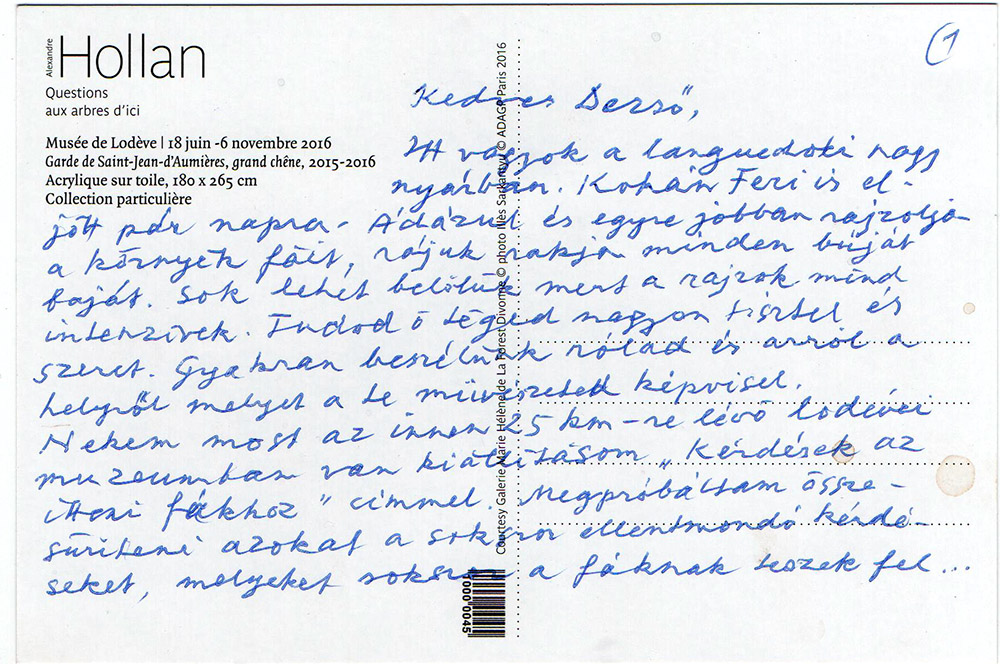 Alexandre
Hollan
Questions
aux arbres d'ici
Musée de Lodève | 18 juin -6 novembre 2016
Garde de Saint-Jean-d'Aumières, grand chêne, 2015-2016
Acrylique sur toile, 180 x 265 cm
Collection particulière
Courtesy Galerie Marie Hélène de La Forest Divonne © photo Illés Sarkantyu © ADAGP Paris 2016
1000 0045
1
Kedves Dezső,
Itt vagyok a languedoki nagy
nyárban. Kohán Feri is el-
jött pár napra. Ádázul és egyre jobban rajzolja
a környék fáit, rájuk rakja minden búját
baját. Sok lehet belőlük mert a rajzok mind
intenzívek. Tudod ő téged nagyon tisztel és
szeret. Gyakran beszélünk rólad és arról a
helyről melyet a te művészeted képvisel.
Nekem most az innen 25 km-re lévő lodévei
muzeumban van kiállításom „Kérdések az
itteni fákhoz" címmel. Megpróbáltam össze-
sűríteni azokat a sokszor ellentmondó kérdé-
seket, melyeket sokszor a fáknak teszek fel...